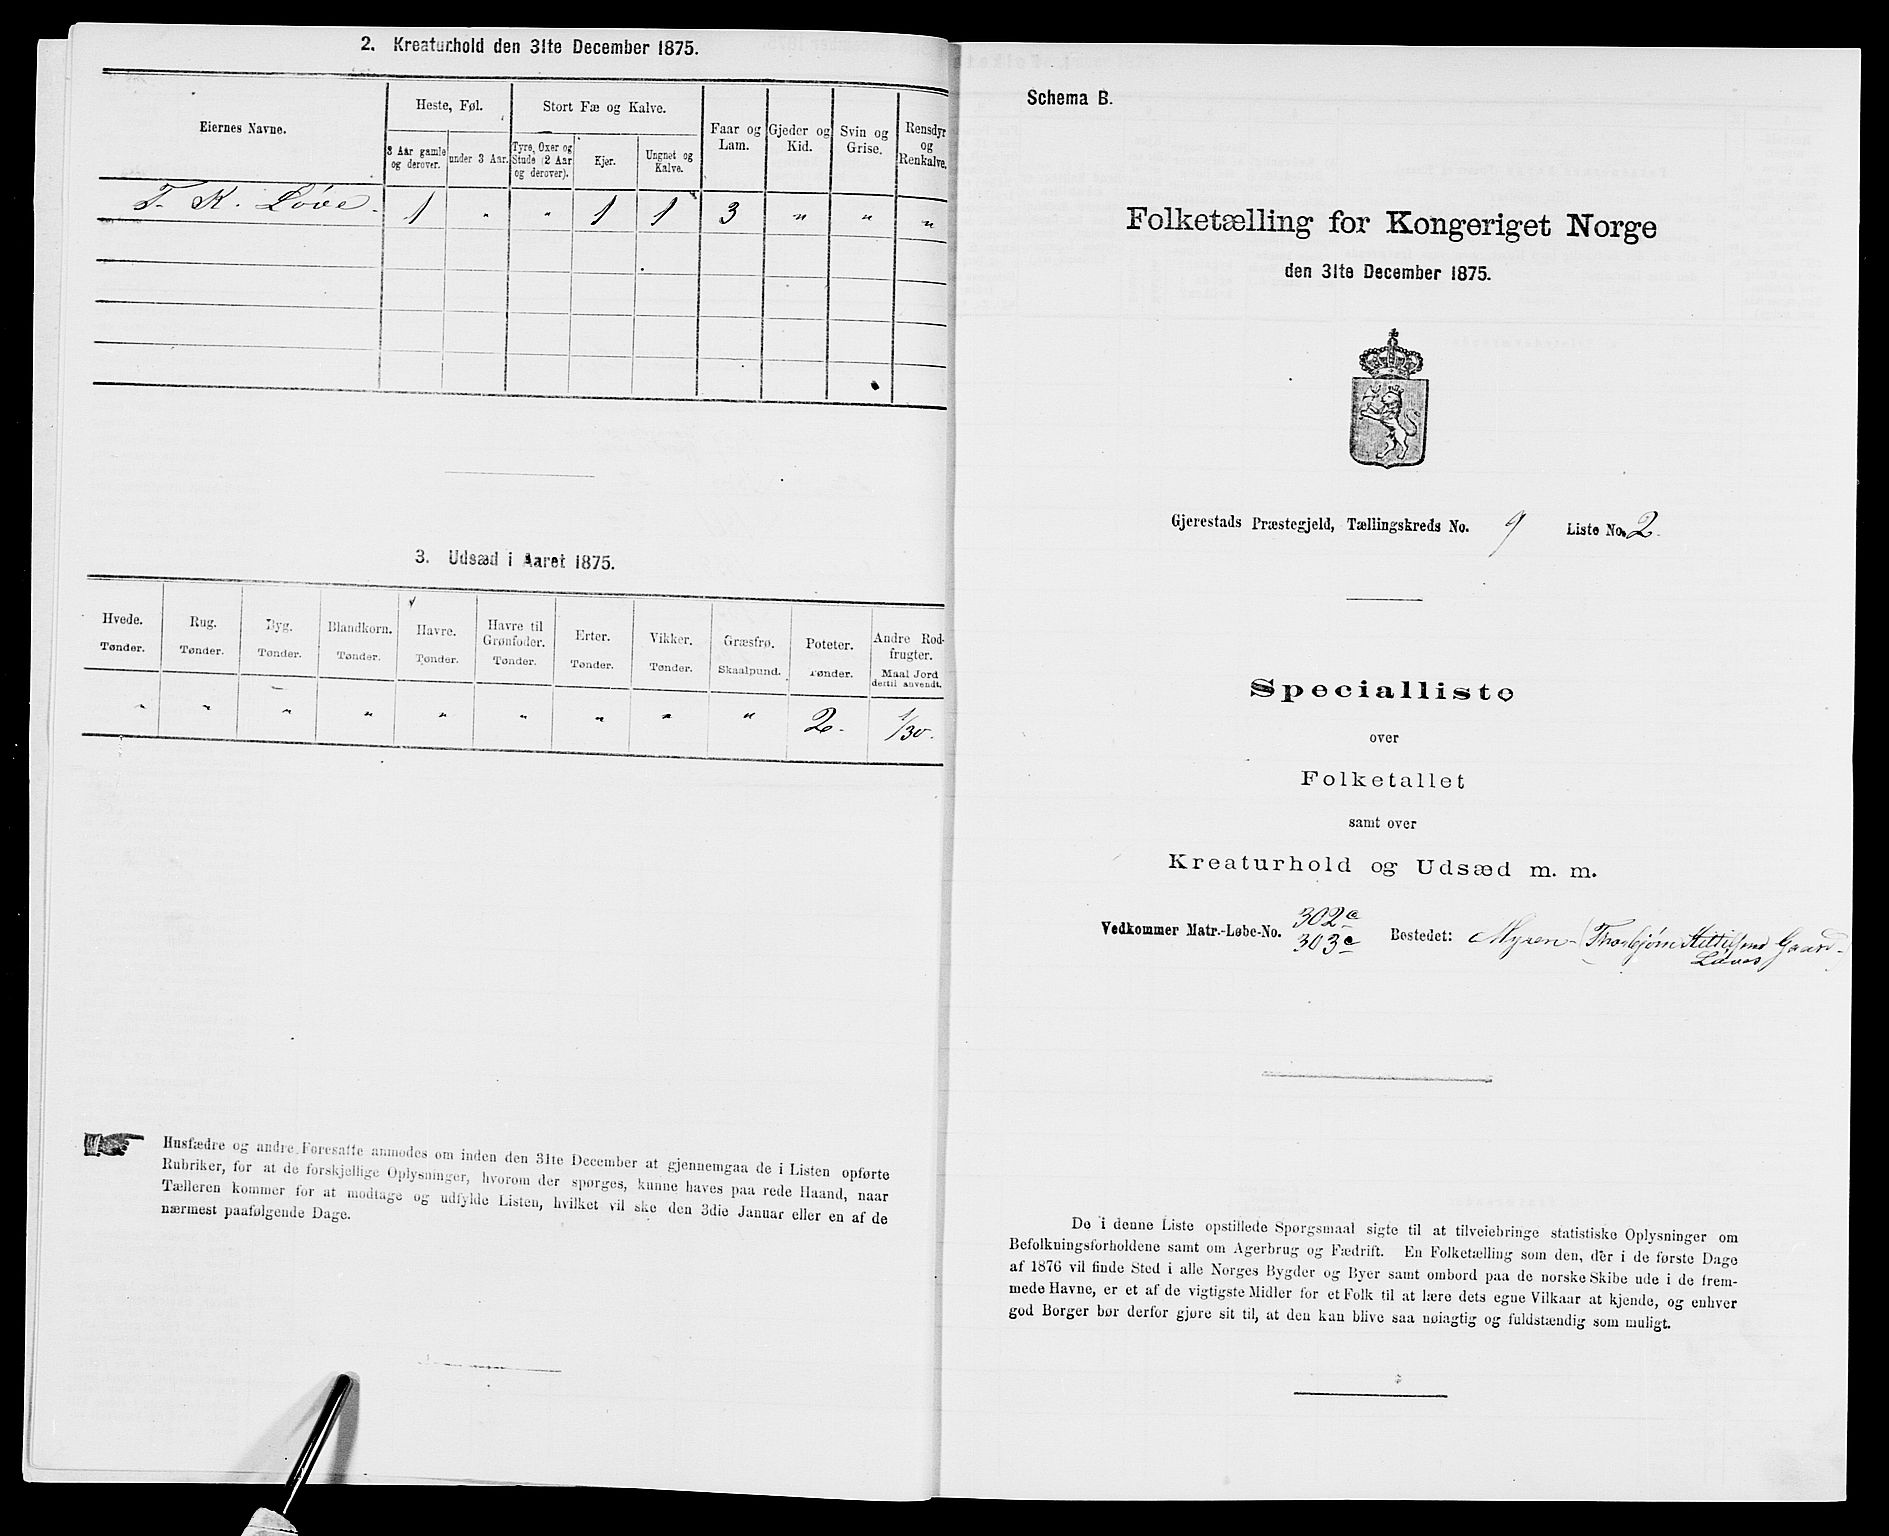 2. Kreaturhold den 31te December 1875.
Eiernes Navne.
Heste, Føl.
Stort Fæ og Kalve.
Faar og Lam.
Gjeder og Kid.
Svin og Grise.
Rensdyr og Renkalve.
3 Aar gamle og derover.
under 3 Aar.
Tyre, Oxer og Stude (2 Aar og derover).
Kjør.
Ungnet og Kalve.
T. K. Løve. 1 " " 1 1 3 " " "
3. Udsæd i Aaret 1875.
Hvede. Rug. Byg. Blandkorn. Havre. Havre til Grønfoder. Erter. Vikker. Græsfrø. Poteter. Andre Rodfrugter.
Tønder. Tønder. Tønder. Tønder. Tønder. Tønder. Tønder. Tønder. Skaalpund. Tønder. Maal Jord dertil anvendt.
" " " " " " " " " 2. 1/30.
Husfædre og andre Foresatte anmodes om inden den 31te December at gjennemgaa de i Listen opførte
Rubriker, for at de forskjellige Oplysninger, hvorom der spørges, kunne haves paa rede Haand, naar
Tælleren kommer for at modtage og udfylde Listen, hvilket vil ske den 3die Januar eller en af de
nærmest paafølgende Dage.
Schema B.
Folketælling for Kongeriget Norge
den 31te December 1875.
Gjerestads Præstegjeld, Tællingskreds No. 9 Liste No. 2.
Specialliste
over
Folketallet
samt over
Kreaturhold og Udsæd m. m.
Vedkommer Matr.-Løbe-No. 302c 303c Bostedet: Myren (Thorbjørn Løves Gaard)
De i denne Liste opstillede Spørgsmaal sigte til at tilveiebringe statistiske Oplysninger om
Befolkningsforholdene samt om Agerbrug og Fædrift. En Folketælling som den, der i de første Dage
af 1876 vil finde Sted i alle Norges Bygder og Byer samt ombord paa de norske Skibe ude i de frem-
mede Havne, er et af de vigtigste Midler for et Folk til at lære dets egne Vilkaar at kjende, og enhver
god Borger bør derfor gjøre sit til, at den kan blive saa nøiagtig og fuldstændig som muligt.